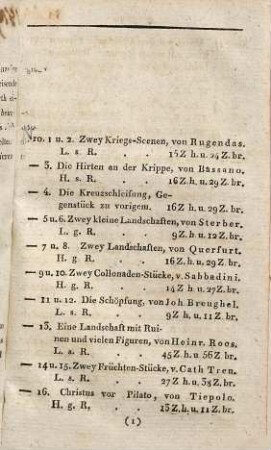 Nro. 1 u. 2. Zwey Kriegs-Scenen, von Rugendas.
L. s. R. . . 15 Z h. u. 24 Z. br.
— 3. Die Hirten an der Krippe, von Bassano.
H. s. R. . . 16 Z h. u. 29 Z. br.
— 4. Die Kreuzschleifung, Ge-
genstück zu vorigem. 16 Z. h. u. 29 Z. br.
— 5 u. 6. Zwey kleine Landschaften, von Sterber.
L. g R. . . 9 Z. h. u. 12 Z. br.
— 7 u. 8. Zwey Landschaften, von Querfurt.
H. g R. . . 16 Z h. u. 29 Z. br.
— 9 u. 10. Zwey Collonaden-Stücke, v. Sabbadini.
H. g R. . . 14 Z h. u. 27 Z. br.
— 11 u. 12. Die Schöpfung, von Joh Breughel.
L. s R. . . 9 Z h. u. 11 Z. br.
— 13. Eine Landschaft mit Rui-
nen und vielen Figuren, von Heinr. Roos.
L. s R. . . 45 Z h. u. 56 Z. br.
— 14 u. 15. Zwey Früchten-Stücke, v. Cath Tren.
L. s R. . . 27 Z h. u. 38 Z. br.
— 16. Christus vor Pilato, von Tiepolo.
H. g R, . . 13 Z, h. u. 11 Z. br.
(1)